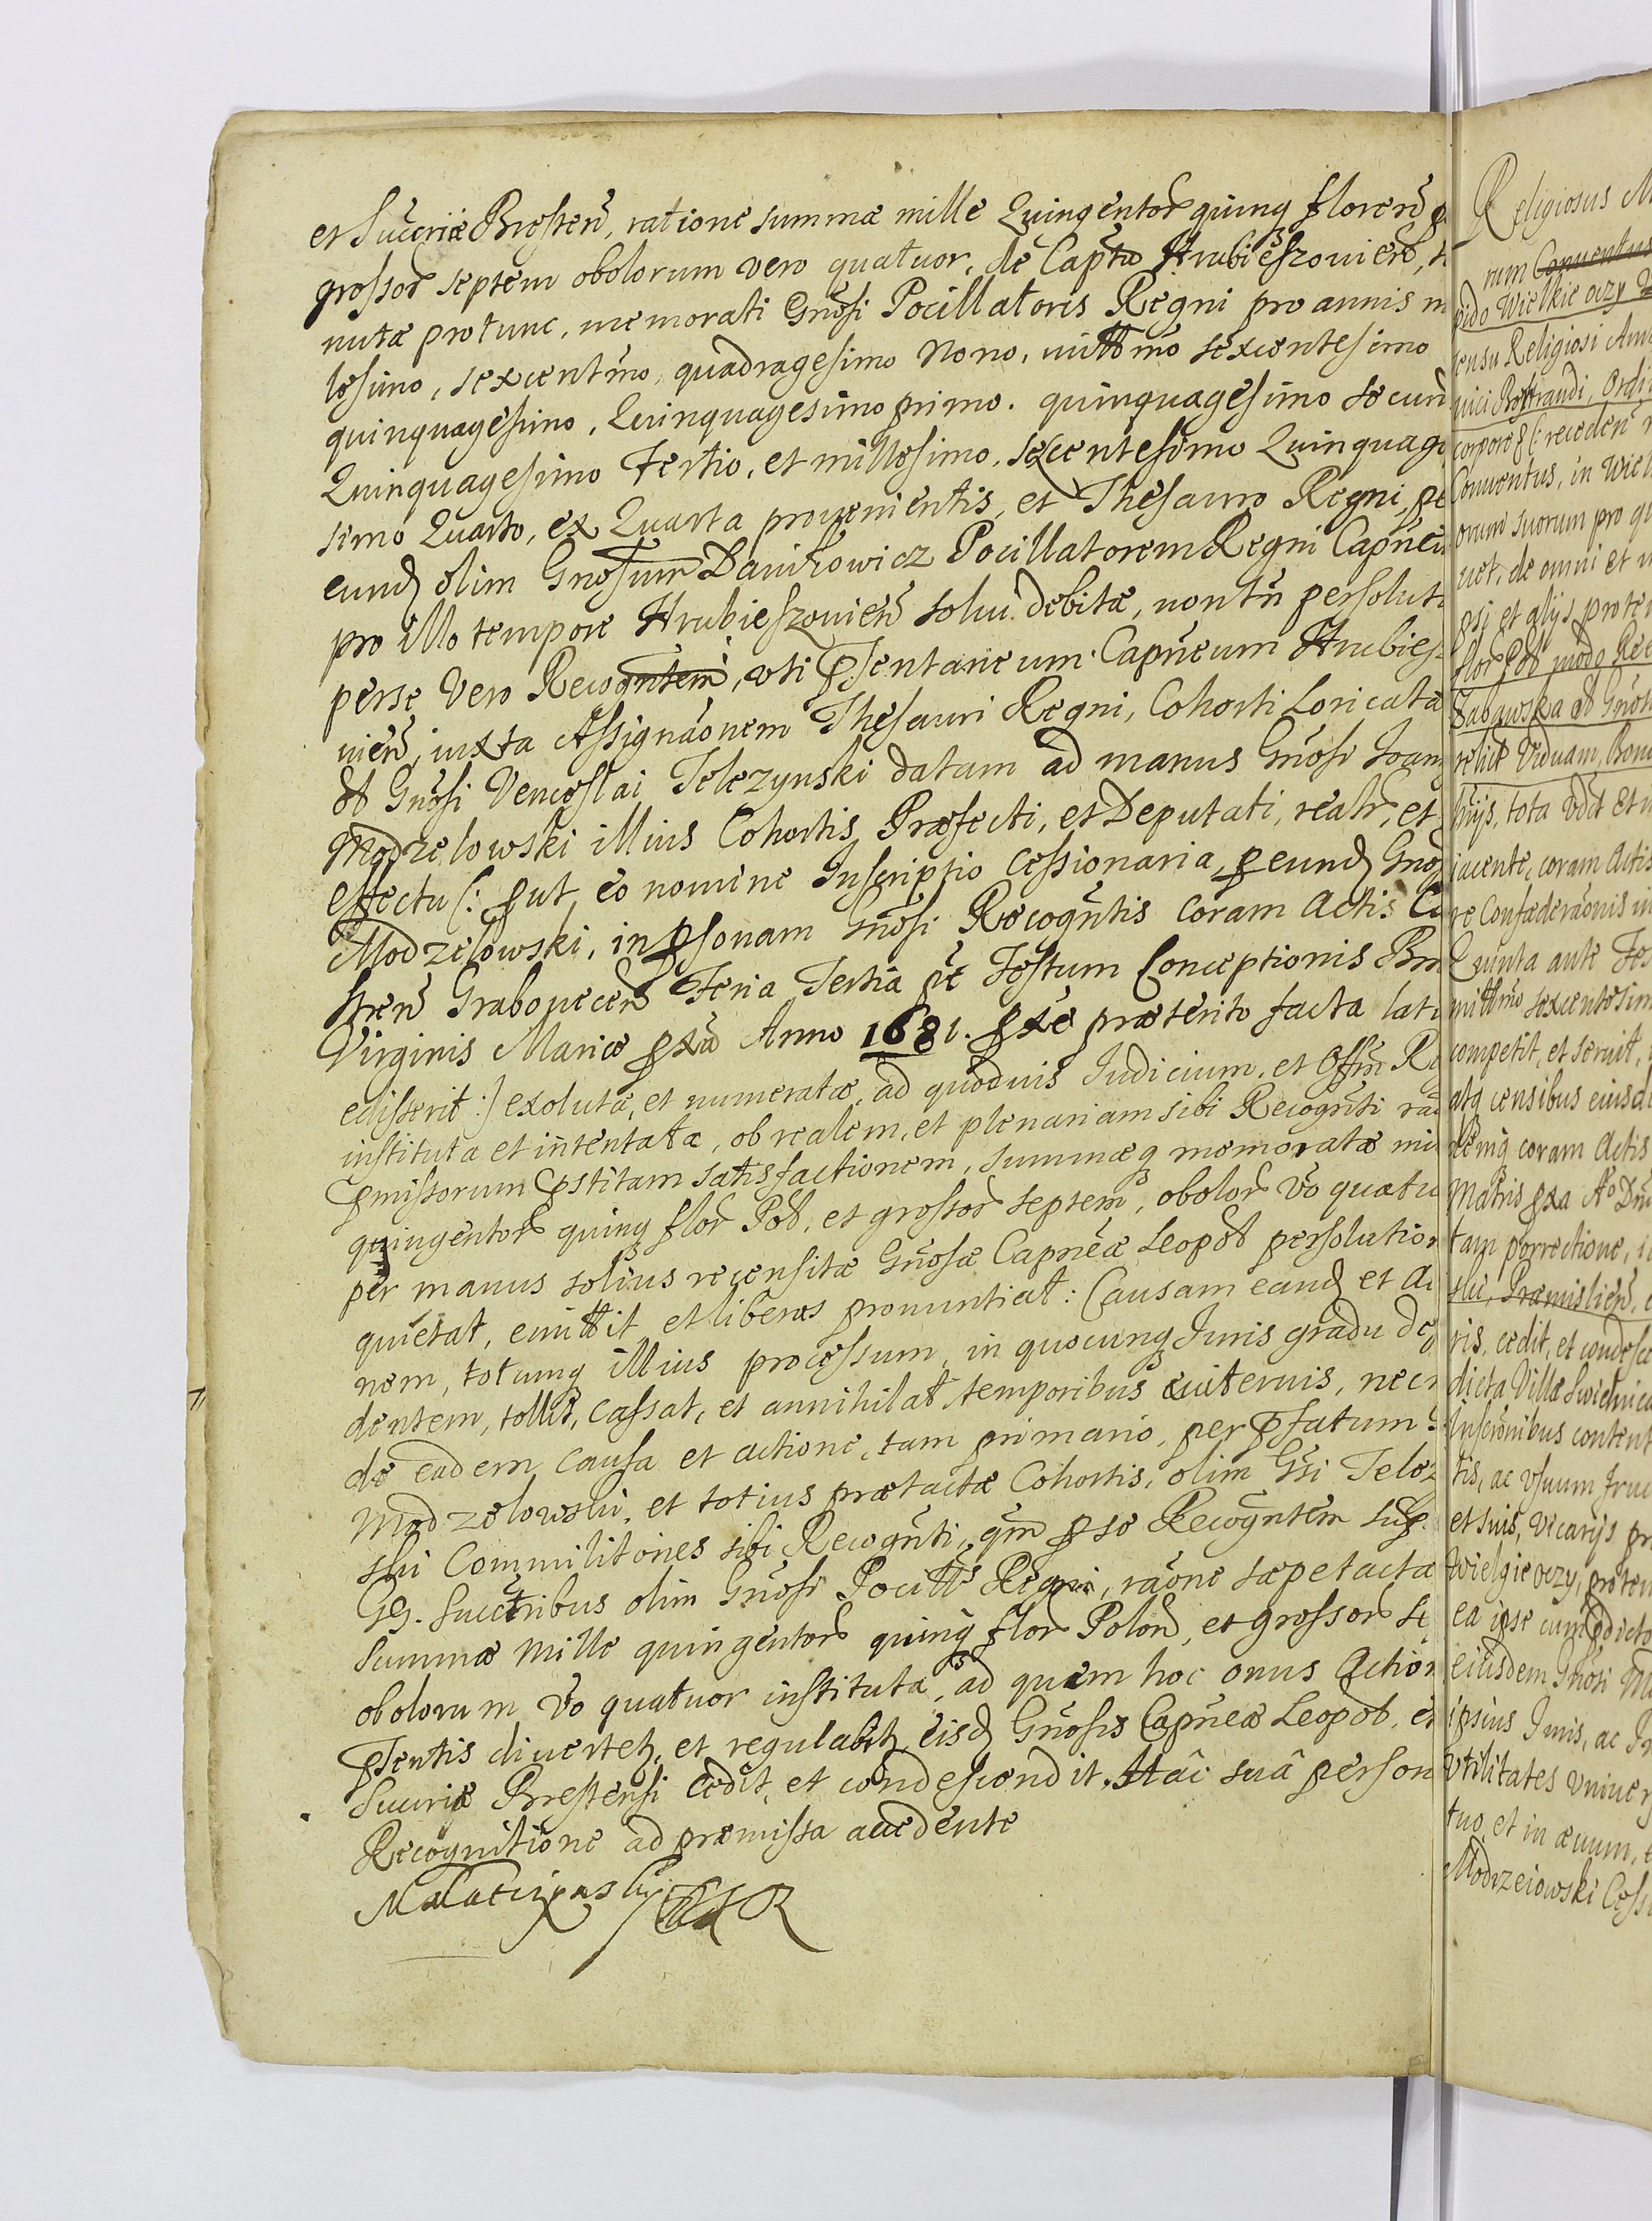 et Succriæ Bresten̄, ratione summæ mille Quingentor̄ quinq̨ floren̄
grossor̄ septem obolorum vero quatuor, de Captū Hrubieszovien̄,
nutæ protunc, memorati Gnōsi Pocillatoris Regni pro annis
lesimo, sexcentmō, quadragesimo Nono, millmō sexcentesimo
quinquagesimo, Quinquagesimo primo. quinquagesimo secun
Quinquagesimo Tertio, et millesimo, sexcentesimo Quinquage
simo Quarto, ex Quarta provenientis, et Thesauro Regni, pe
eund̨ olim Gnosum Daniłowicz Pocillatorem Regni Capnēu
pro illo tempore Hrubieszovien̄ solui debitæ, non tn̄ persolut
perse vero Recogntem̄, uti p̄sentaneum Capnēum Hrubies
vien̄, iuxta Assignāonem Thesauri Regni, Cohorti Loricatæ
Gnōsi Venceslai Telezynski datam ad manus Gnōsi Joan
Modzelowski illius Cohortis Præfecti, et Deputati, realr̄, et
effectu (: p̄ut eo nomine Inscriptio Cessionaria, p̄ eund̨ Gnos
Modzelowski, in p̄sonam Gnōsi Recogntis̄ coram Actis Ca
stren̄ Grabovecen̄ Feria Tertia pt̄ Festum Conceptionis Bm̄
Virginis Mariæ pxā Anno 1681. pxē præterito facta lati
edisserit :) exoluta, et numeratæ, ad quoduis Judicium, et Offm̄ R
instituta et intentata, ob realem, et plenariam sibi Recogntī rāe
p̄missorum p̄stitam satisfactionem, summæq̨ memoratæ mi
quingentor̄ quinq̨ flor̄ Pol̄, et grossor̄ septem, obolor̄ vō quatu
per manus solius recensitæ Gnōsæ Capnēæ Leopol̄ persolution
quietat, emittit et liberos pronuntiat: Causam eand̨ et Ac
nem, totumq̨ illius processum, in quocunq̨ Juris gradu de
dentem, tollit, cassat, et annihilat temporibus æviternis, nec
de eadem causa et actione, tam primario, per p̄fatum
Modzelowski, et totius prætactæ Cohortis, olim Gsi Telez
ski Commilitones sibi Recogntī, qm̄ p̄ se Recogntem̄ sup.
GG. Succribus olim Gnōsi Pocillrs Regni, rāone sæpetactæ
Summæ Mille quingentor̄ quinq̨ flor̄ Polon̄, et grossor̄ se
obolorum vō quatuor instituta, ad quem hoc onus Action
p̄sentis divertet, et regulabit, eisd̨ Gnōsis Capneæ Leopol̄, et
Succriæ Brestensi cedit, et condescendit. Hac suâ person
Recognitione ad præmissa accedente

Religiosus M
rum Conventus
pido Wielkie oczy
sensu Religiosi Am
corpore (: receden̄
Conventus, in Wiel
orum suorum pro
uet, de omni et
psi et alijs proten
relict Viduam, Bono
iacente, coram Actis
re Confœderāonis in
Quinta ante Fes
millmō sexcentesim
competit, et servit,
atq̨ censibus eiusd
deniq̨ coram Actis
Matris pxā Aō Dni
tam porrectione,
ski, Præmislien̄,
ris, cedit, et condesce
dicta Villæ Swidnica
Inscrōnibus content
tis, ac usuum fruc
et suis, vicarijs pr
Wielgie oczy, proten
ea ipse cum p̄dicto
eiusdem Gnōsi M
ipsius Juris, ac In
Utilitates univers
tuo, et in ævum,
Modrzeiowski Cessi